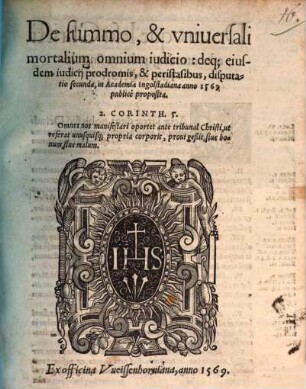 De summo, & vniuersali
mortalium omnium iudicio: deq; eius-
dem iudicij prodromis, & peristasibus, disputa-
tio secunda, in Academia Ingolstadiana anno 1569
publicè proposita.
2. CORINTH. 5.
Omnes nos manifestari oportet ante tribunal Christi, ut
referat unusquisq; propria corporis, prout gessit, siue bo-
num, siue malum.
IHS
Ex officina Vueissenhorniana, anno 1569.